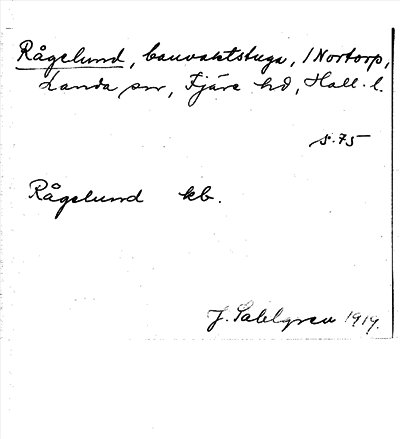 Rågelund, banvaktstuga, / Nortorp,
Landa sn, Fjäre hd, Hall. l.
s. 75
Rågelund kb.
J. Sahlgren 1919.